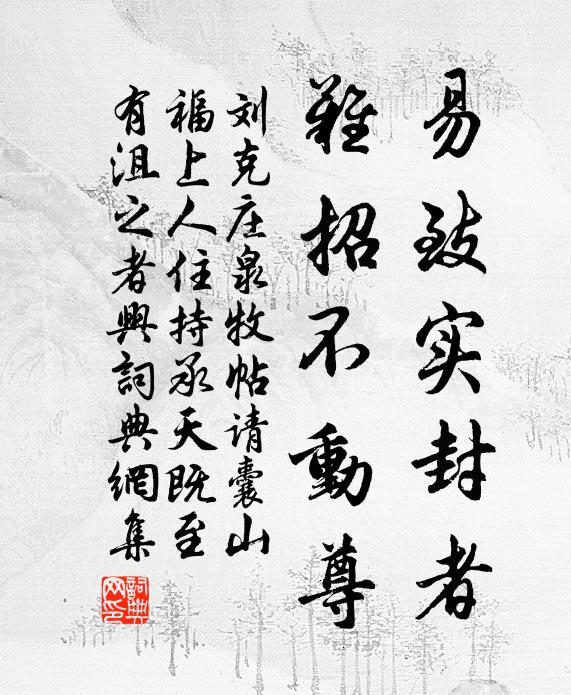 易致实封者
难招不動尊
刘克庄泉牧帖请囊山
福上人住持承天既至
有沮之者興詞典網集